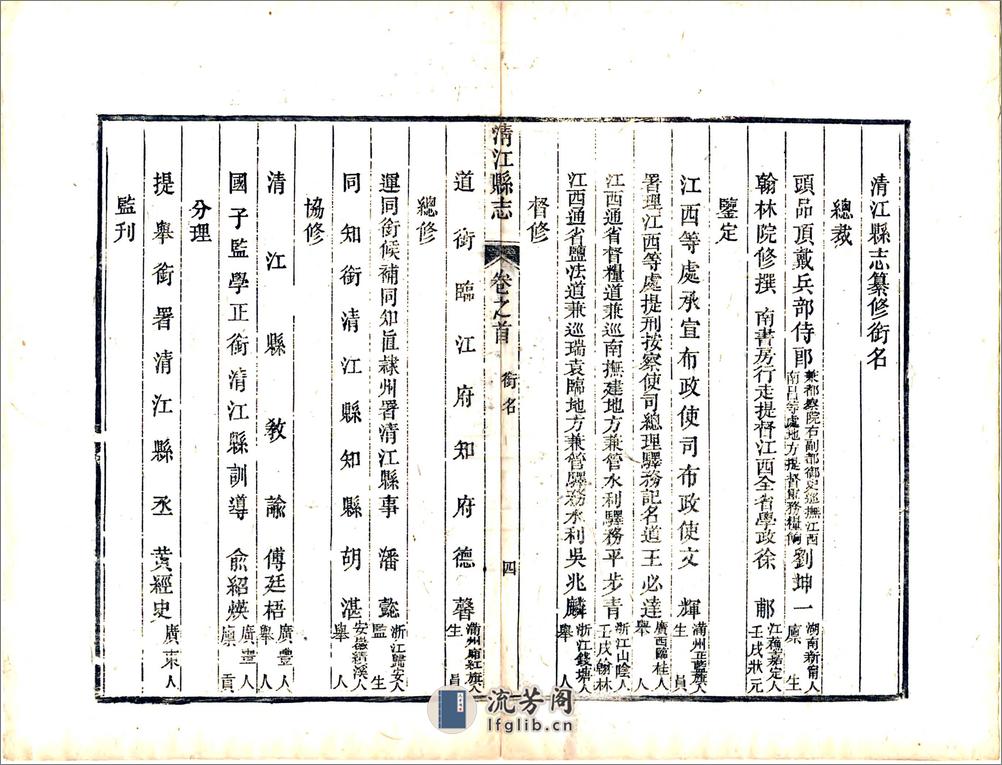 清江縣志纂修銜名
總裁
頭品頂戴兵部侍郎兼都察院右副都御史巡撫江西南昌等處地方提督軍務糧餉劉坤一湖南新甯人廪生
翰林院修撰 南書房行走提督江西全省學政徐 郙江蘇嘉定人壬戌狀元
鑒定
江西等處承宣布政使司布政使文 輝滿州正藍旗人生員
署理江西等處提刑按察使司總理驛務記名道王必達廣西臨桂人舉人
江西通省督糧道兼巡南撫建地方兼管水利驛務平步青浙江山陰人壬戌翰林
江西通省鹽法道兼巡瑞袁臨地方兼管驛務水利吳兆麟浙江錢塘人舉人
督修
清江縣志 卷之首 銜名 四
道銜臨江府知府德馨滿州鑲紅旗人生員
總修
運同銜候補同知直隸州署清江縣事 潘 懿浙江歸安人監生
同知銜清江縣知縣 胡 湛安徽績溪人舉人
協修
清江縣教諭 傅廷梧廣豐人舉人
國子監學正銜清江縣訓導 俞紹煐廣豐人廪貢
分理
提舉銜署清江縣丞 黃經史廣東人
監刊
流芳阁
lfglib.cn